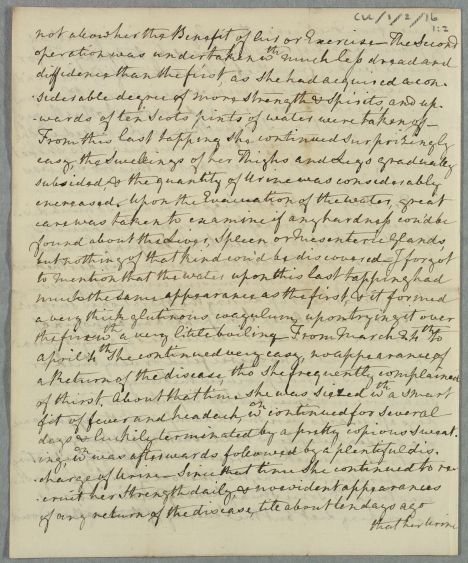 CU/1/2/16
1:2
not allow her the Benefit of Air or Exercise The Second
operation was undertaken wth much less dread and
diffidence than the first, as she had acquired a con-
-siderable degree of more strength & spirits, and up-
-wards of ten Scots pints of water were taken off
From this last tapping she continued surprizingly
easy, the Swellings of her Thighs and Legs gradually
subsided & the quantity of Urine was considerably
encreased. Upon the Evacuation of the water, great
care was taken to examine if any hardness cou'd be
found about the Liver, Spleen or Mesenteric Glands,
but nothing of that kind cou'd be discovered. I forgot
to mention that the water upon this last tapping had
much the same appearance as the first, & it formed
a very thick glutinous coagulum, upon trying it over
the fire wth a very litle boiling. From March 24th to
April 4th She continued very easy, no appearance of
a Return of the disease, tho She frequently complained
of thirst. About that time she was siezed wth a smart
fit of fever and headach, wch continued for Several
days & luckily terminated by a pretty copious Sweat-
ing, wch was afterwards followed by a plentiful dis-
-charge of Urine Since that time She continued to re-
-cruit her Strength daily, & no evident appearances
of any return of the disease, till about ten days ago
that her Urine